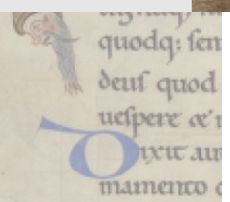 quodq: sem
deus quod
uespere & m
Dixit au
mamento c